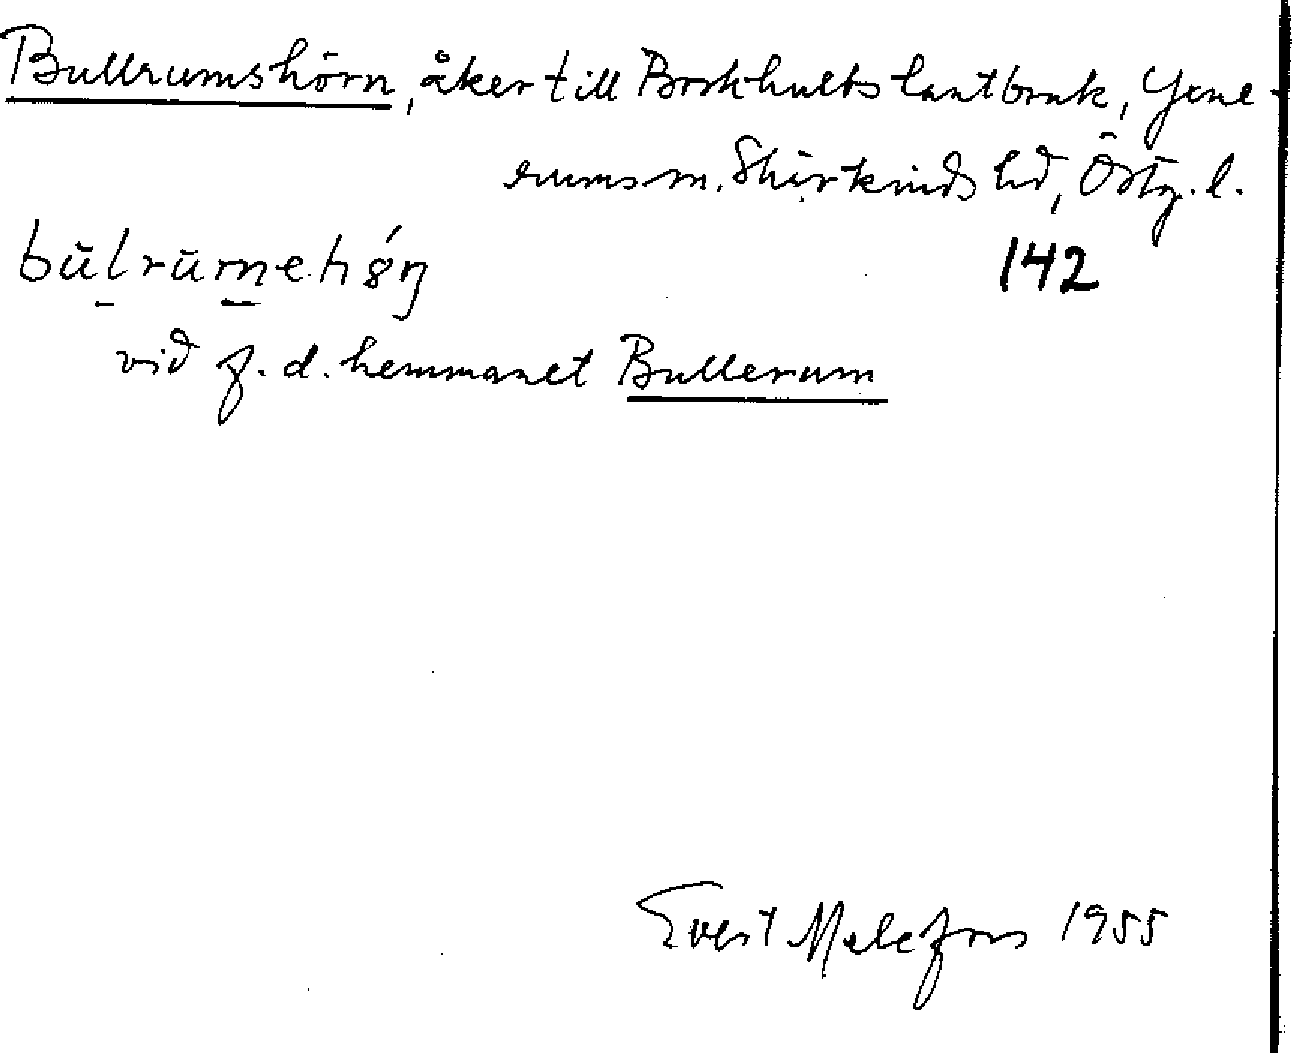 Bullrumshörn, åker till Borkhults lantbruk, Yxne-
rums sn, Skärkinds hd, Östg. l.
142
vid f. d. hemmanet Bullerum
Evert Melefors 1955